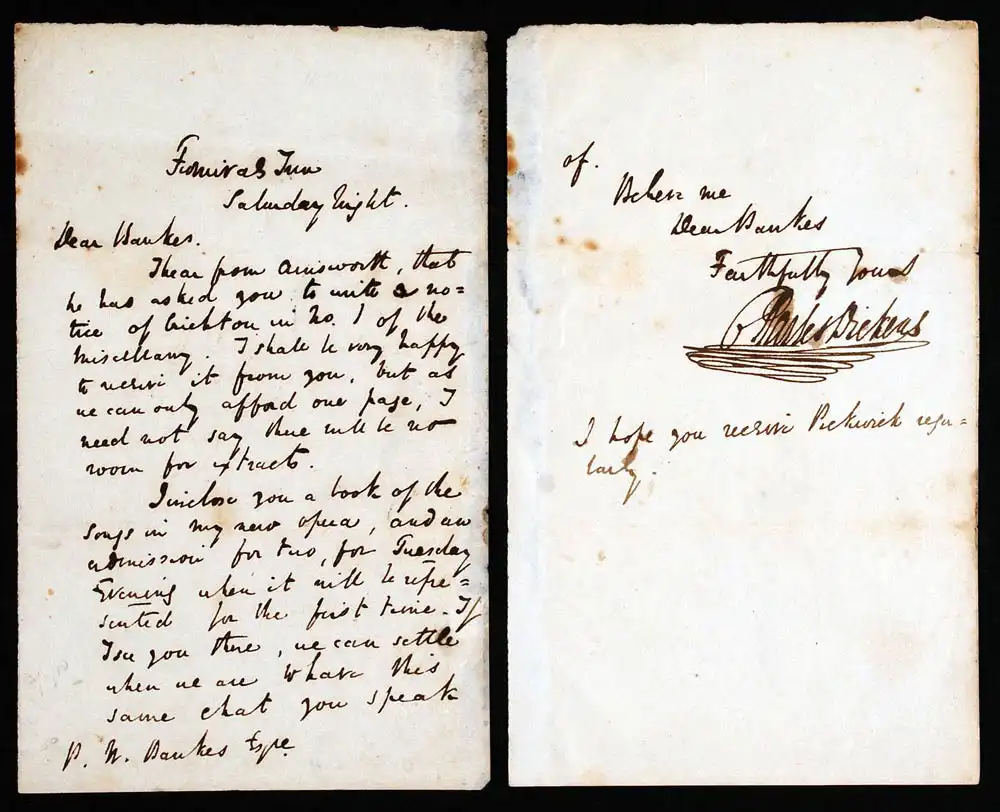 Furnivals Inn
Saturday Night.
Dear Bankes.
I hear from Ainsworth, that
he has asked you to write a no=
tice of Crichton in No. 1 of the
Miscellany. I shall be very happy
to receive it from you, but as
we can only afford one page, I
need not say there will be no
room for extracts.
I inclose you a book of the
songs in my new opera, and an
admission for two, for Tuesday
Evening when it will be repre=
sented for the first time. If
I see you there, we can settle
when we are to have this
same chat you speak
P. W. Bankes Esqre
of.
Believe me
Dear Bankes
Faithfully Yours
Charles Dickens
I hope you receive Pickwick regu=
larly.